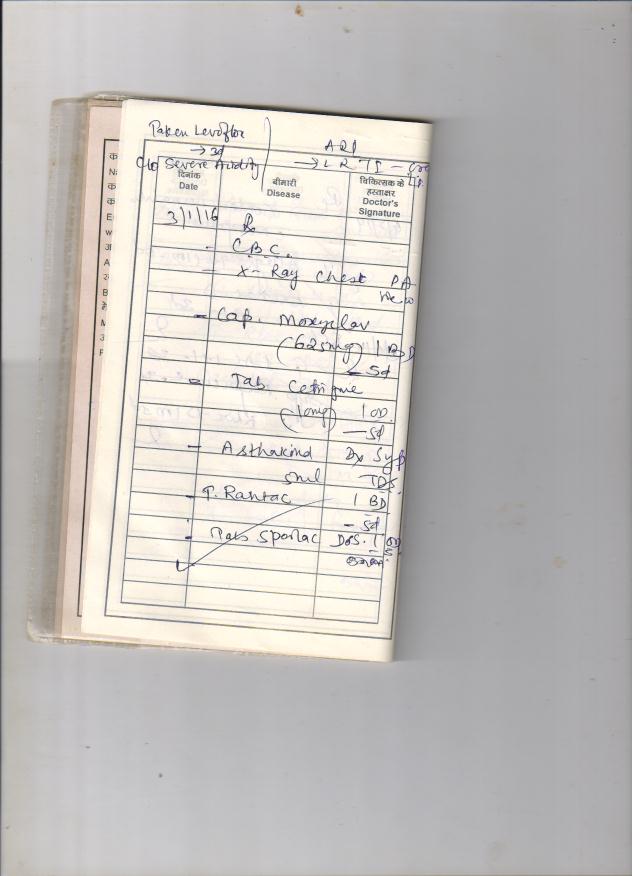 Taken Levoflox
→ 3d
ARI
C/o Severe Acidity
→ LRTI -
दिनांक
Date
बीमारी
Disease
चिकित्सक के
हस्ताक्षर
Doctor's
Signature
3/1/16 Rx
- C.B.C.
- X-Ray Chest PA
View
- Cap. Moxyclav
(625mg) 1 BD
- 5d
- Tab. Cetrizine
(10mg) 1 OD.
- 5d
- Asthakind Dx Syp
5ml TDS.
- T. Rantac 1 BD
- 5d
- Tab Sporlac DS. 1